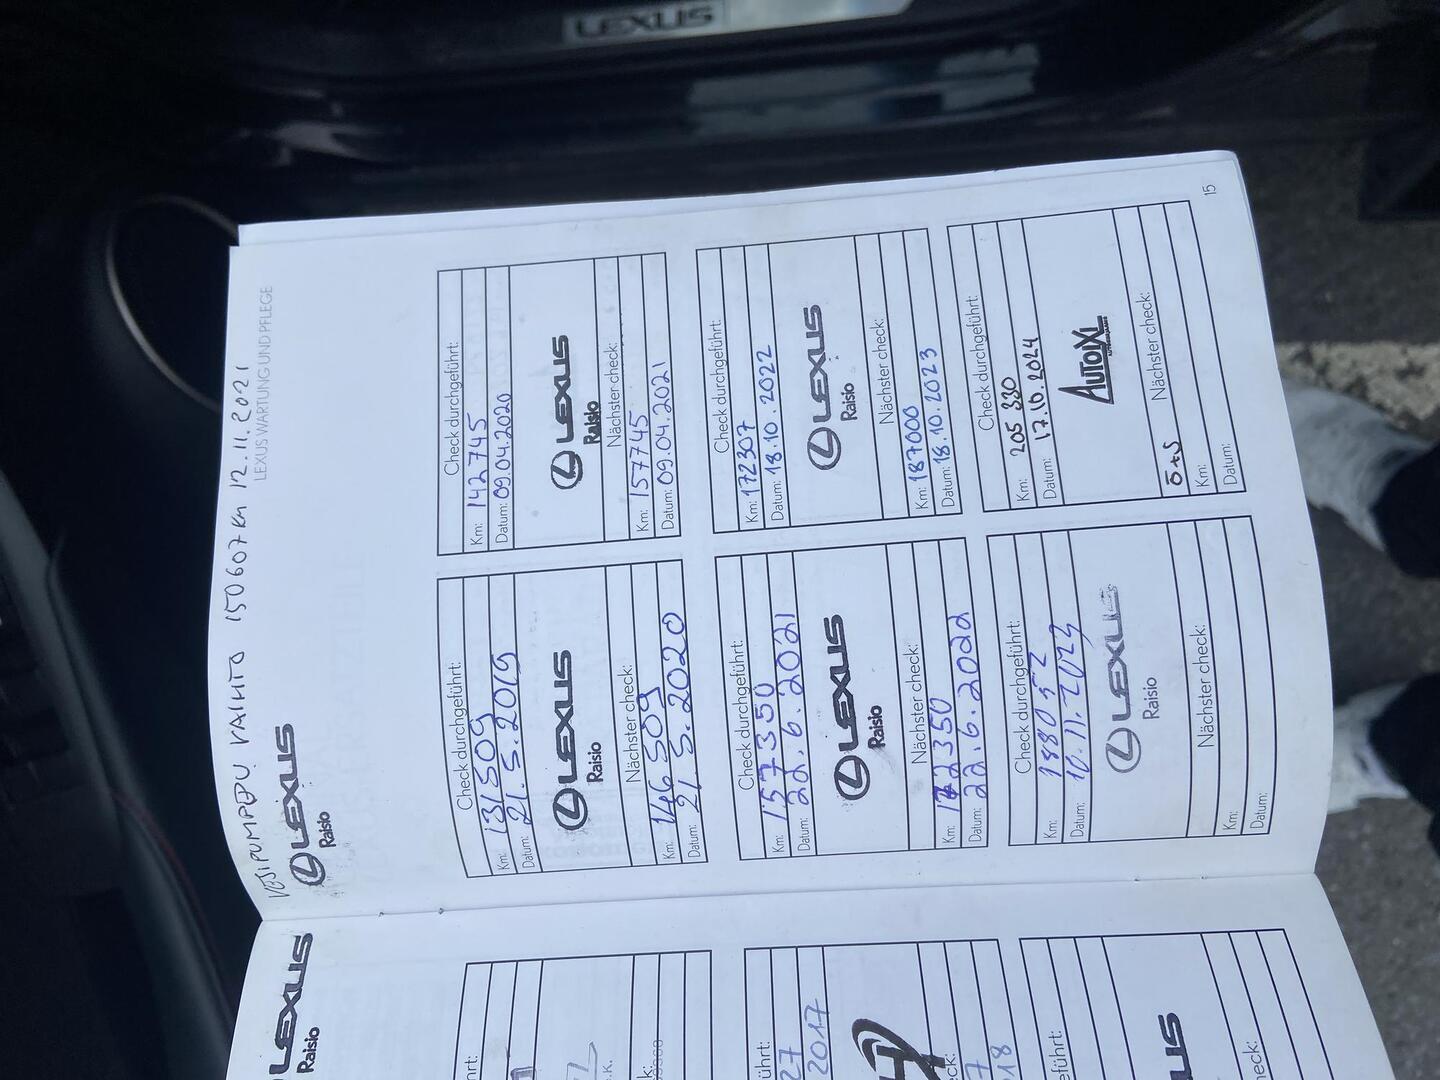 LEXUS
VESIPUMPPU VAIHTO 150607 km 12.11.2021
LEXUS WARTUNG UND PFLEGE
LEXUS
Raisio
Check durchgeführt:
Km: 131509
Datum: 21.5.2019
LEXUS
Raisio
Nächster check:
Km: 146509
Datum: 21.5.2020
Check durchgeführt:
Km: 142745
Datum: 09.04.2020
LEXUS
Raisio
Nächster check:
Km: 157745
Datum: 09.04.2021
Check durchgeführt:
Km: 157350
Datum: 22.6.2021
LEXUS
Raisio
Nächster check:
Km: 172350
Datum: 22.6.2022
Check durchgeführt:
Km: 172307
Datum: 18.10.2022
LEXUS
Raisio
Nächster check:
Km: 187000
Datum: 18.10.2023
Check durchgeführt:
Km: 188052
Datum: 10.11.2023
LEXUS
Raisio
Nächster check:
Km:
Datum:
Check durchgeführt:
Km: 205 330
Datum: 17.10.2024
AUTOIXI
Nächster check:
Ö+S
Km:
Datum:
15
LEXUS
Raisio
2017